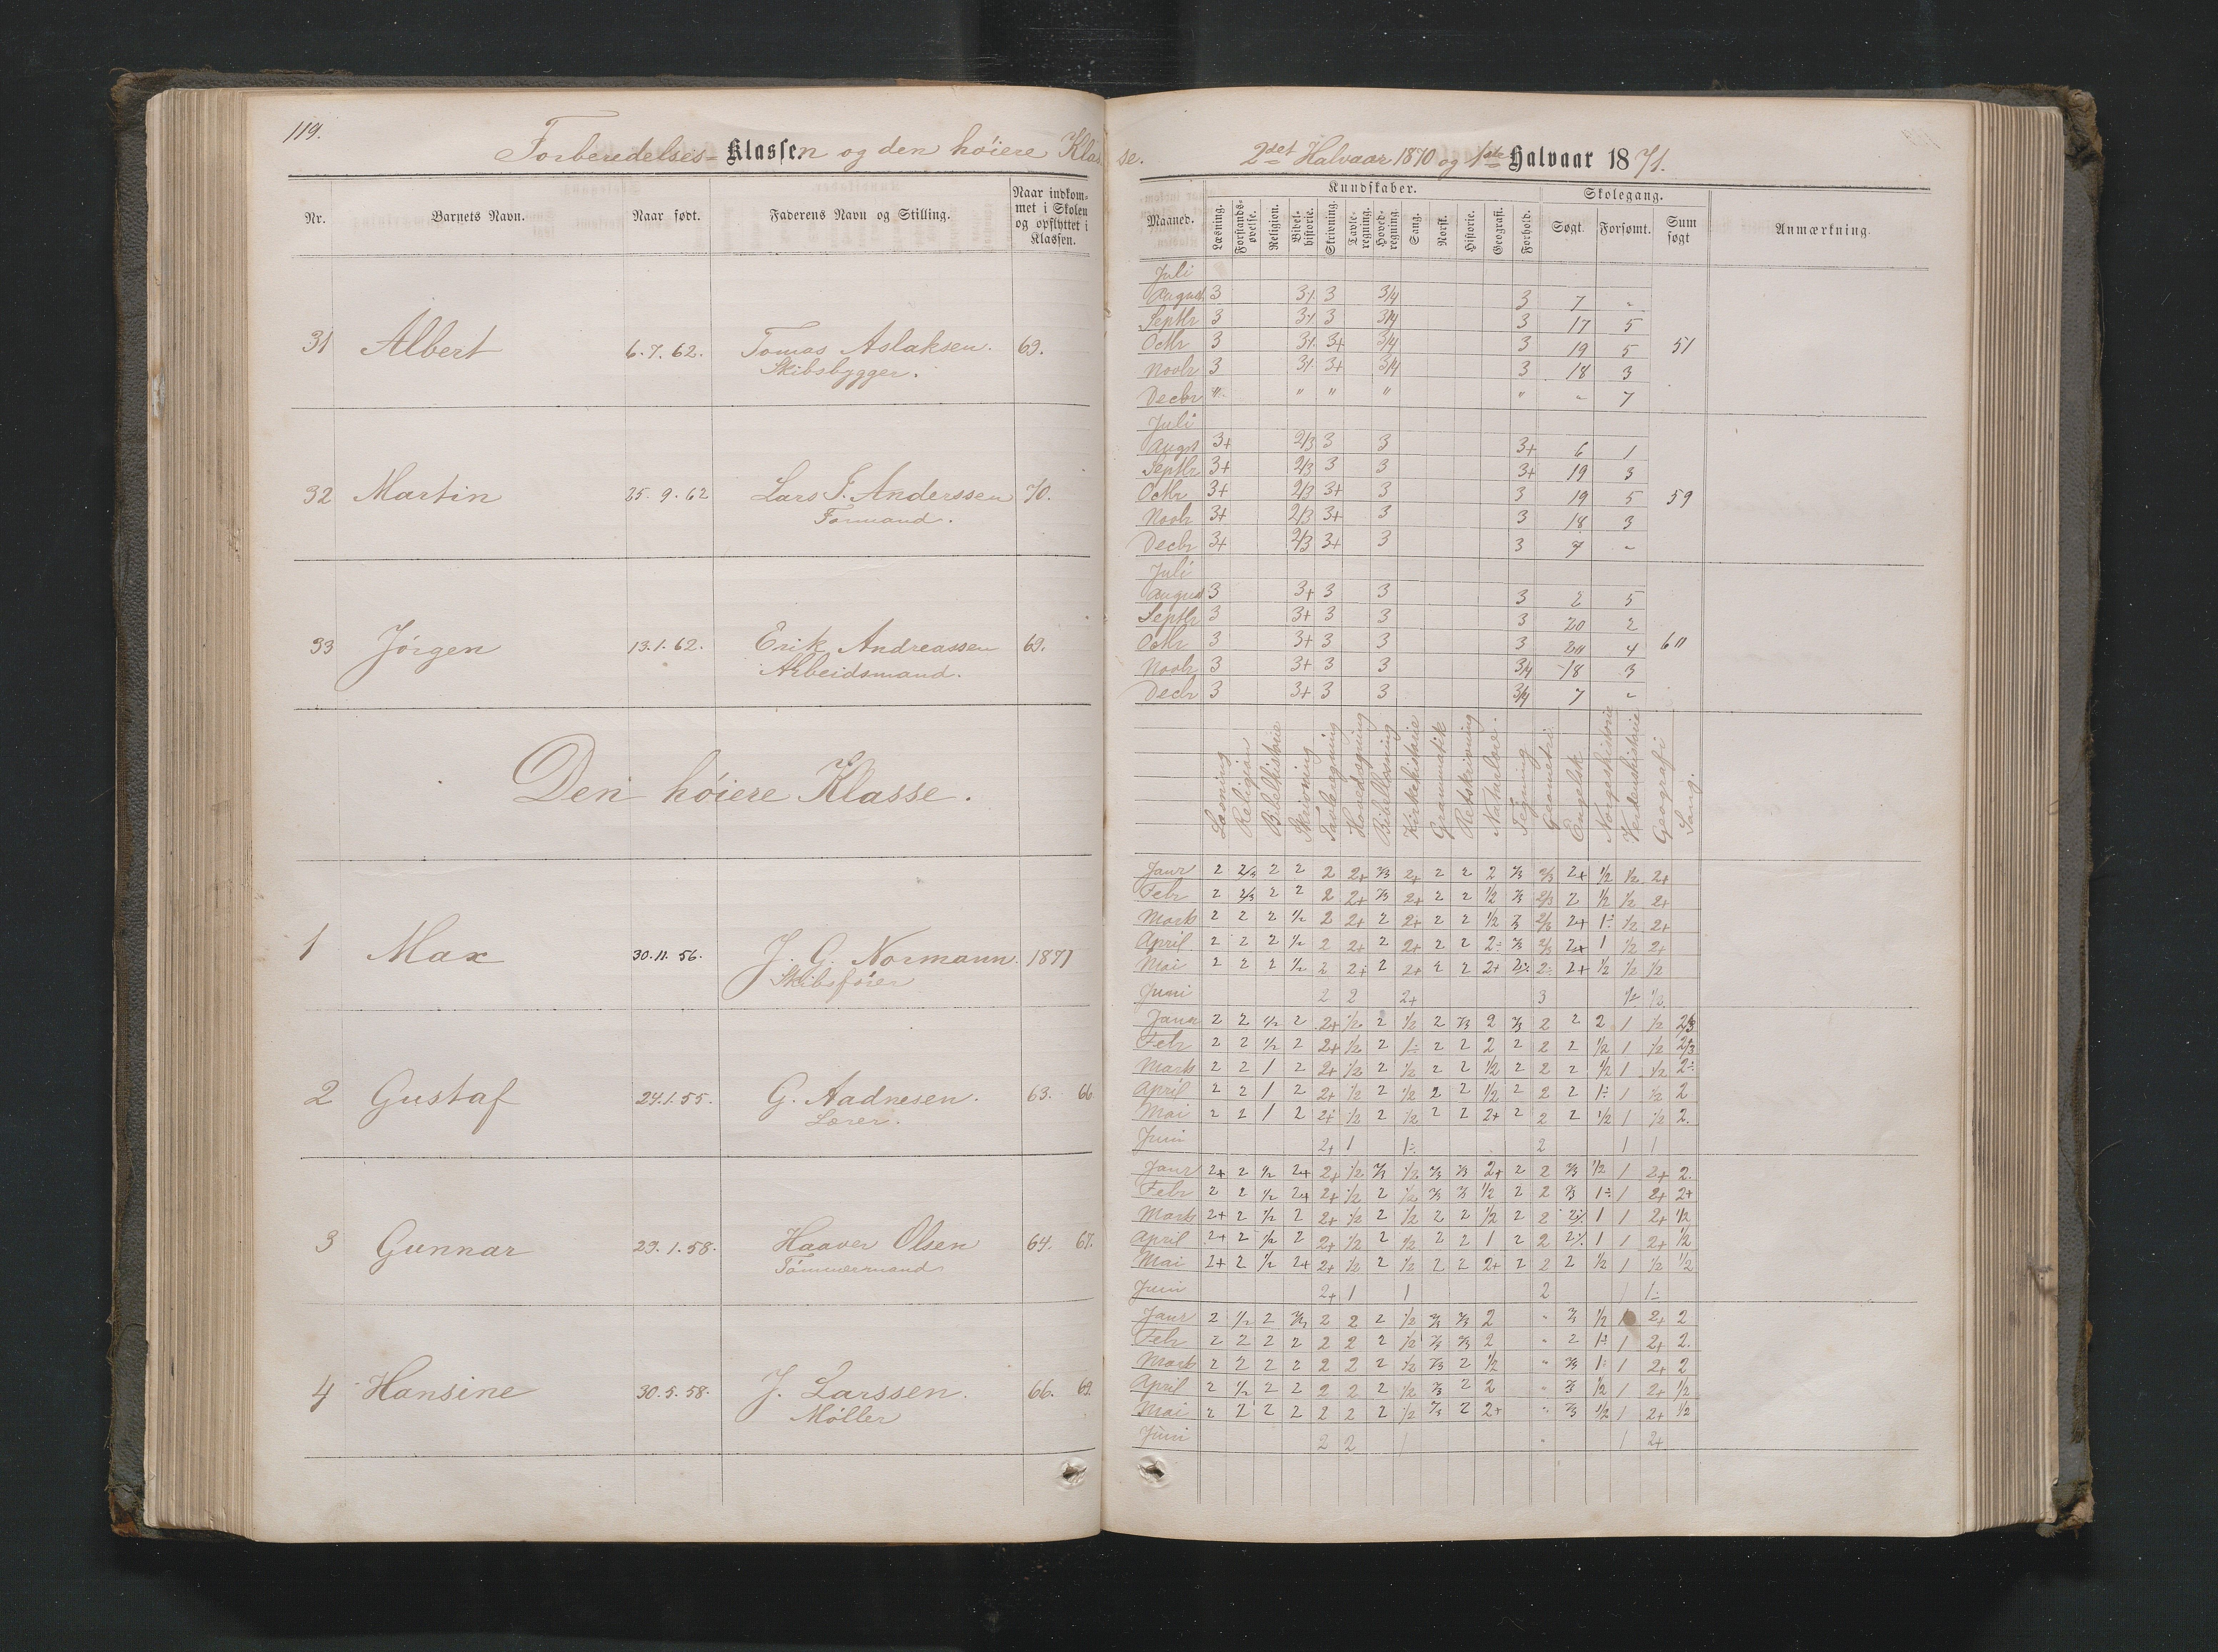 119.
Forberedelses- Klassen og den höiere Klasse. 2det Halvaar 1870 og 1ste Halvaar 1871.
Nr. Barnets Navn. Naar født. Faderens Navn og Stilling. Naar indkommet i Skolen og opflyttet i Klassen.
31 Albert 6.7.62. Tomas Aslaksen. 69.
Skibsbygger.
32 Martin 25.9.62 Lars T. Anderssen 70.
Formand.
33 Jörgen 13.1.62. Erik Andreassen 69.
Arbeidsmand.
Den höiere Klasse.
1 Max 30.11.56. J. G. Normann. 1871
Skibsförer
2 Gustaf 24.1.55. G. Aadnesen. 63. 66
Lærer.
3 Gunnar 29.1.58. Haaver Olsen 64. 67.
Tömmermand
4 Hansine 30.5.58. J. Larssen. 66. 69.
Möller
Maaned. Kundskaber. Skolegang. Anmærkning
Læsning. Forstandsøvelse. Religion. Bibelhistorie. Skrivning. Tavleregning. Hovedregning. Sang. Norsk. Historie. Geografi. Forhold. Søgt. Forsømt. Sum søgt
Juli
August 3 3% 3 3/4 3 7 "
Septbr 3 3% 3 3/4 3 17 5
Octbr 3 3% 3+ 3/4 3 19 5 51
Novbr 3 3% 3+ 3/4 3 18 3
Decbr " " " " " " 7
Juli
Augst 3+ 2/3 3 3 3+ 6 1
Septbr 3+ 2/3 3 3 3+ 19 3
Octbr 3+ 2/3 3+ 3 3 19 5 59
Novbr 3+ 2/3 3+ 3 3 18 3
Decbr 3+ 2/3 3+ 3 3 7 "
Juli
August 3 3+ 3 3 3 2 5
Septbr 3 3+ 3 3 3 20 2
Octbr 3 3+ 3 3 3 20 4 60
Novbr 3 3+ 3 3 3/4 18 3
Decbr 3 3+ 3 3 3/4 7 "
Læsning Religion Bibelhistorie Skrivning Tavleregning Hovedregning Bibellæsning Kirkehistorie Grammatik Retskrivning Naturlære. Tegning Geometri. Engelsk Norgeshistorie Verdenshistorie Geografi Sang.
Janr 2 2/3 2 2 2 2+ 2/3 2+ 2 2 2 2/3 2/3 2+ 1/2 1/2 2+
Febr 2 2/3 2 2 2 2+ 2/3 2+ 2 2 1/2 2/3 2/3 2 1/2 1/2 2+
Marts 2 2 2 1/2 2 2+ 2 2+ 2 2 1/2 2/3 2/3 2+ 1÷ 1/2 2+
April 2 2 2 1/2 2 2+ 2 2+ 2 2 2÷ 2/3 2/3 2+ 1 1/2 2+
Mai 2 2 2 1/2 2 2+ 2 2+ 2 2 2+ 2÷ 2÷ 2+ 1/2 1/2 1/2
Juni 2 2 2+ 3 1÷ 1/2
Janr 2 2 1/2 2 2+ 1/2 2 1/2 2 2/3 2 2/3 2 2 2 1 1/2 2/3
Febr 2 2 1/2 2 2+ 1/2 2 1÷ 2 2 2 2 2 2 1/2 1 1/2 2/3
Marts 2 2 1 2 2+ 1/2 2 1/2 2 2 1/2 2 2 2 1/2 1 1/2 2÷
April 2 2 1 2 2+ 1/2 2 1/2 2 2 1/2 2 2 2 1÷ 1 1/2 2
Mai 2 2 1 2 2+ 1/2 2 1/2 2 2 2+ 2 2 2 1/2 1 1/2 2.
Juni 2+ 1 1÷ 2 1 1
Janr 2+ 2 1/2 2+ 2+ 1/2 2/3 1/2 2/3 2/3 2+ 2 2 2/3 1/2 1 2+ 2.
Febr 2 2 1/2 2+ 2+ 1/2 2 1/2 2/3 2/3 1/2 2 2 2/3 1÷ 1 2+ 2+
Marts 2+ 2 1/2 2 2+ 1/2 2 1/2 2 2 1/2 2 2 2% 1 1 2+ 1/2
April 2+ 2 1/2 2 2+ 1/2 2 1/2 2 2 1 2 2 2% 1 1 2+ 1/2
Mai 2+ 2 1/2 2+ 2+ 1/2 2 1/2 2 2 2+ 2 2 2 1/2 1 1/2 1/2
Juni 2+ 1 1 2 1 1÷
Janr 2 1/2 2 2/3 2 2 2 1/2 2/3 2/3 2 " 2/3 1/2 1 2+ 2
Febr 2 2 2 2 2 2 2 1/2 2/3 2/3 2 " 2 1÷ 1 2+ 2.
Marts 2 2 2 2 2 2 2 1/2 2/3 2 1/2 " 2/3 1÷ 1 2+ 2
April 2 1/2 2 2 2 2 2 1/2 2/3 2 2 " 2/3 1/2 1 2+ 1/2
Mai 2 2 2 2 2 2 2 1/2 2/3 2 2+ " 2/3 1/2 1 2+ 1/2
Juni 2 2 1 " 1 2+